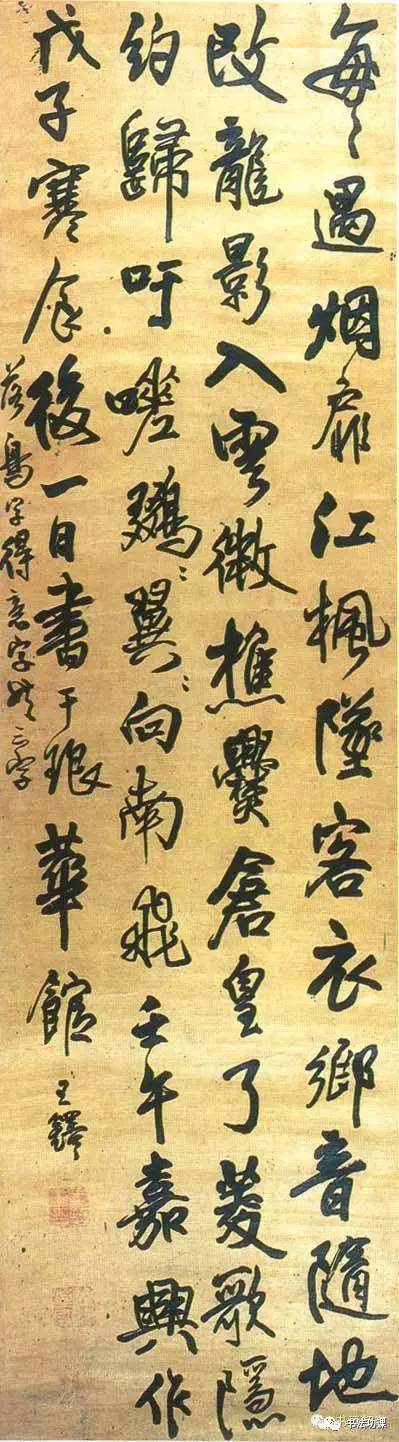 每〻遇烟扉江楓墜客衣鄉音隨地
改龍影入雲微樵爨倉皇了菱歌隱
約歸吁嗟翼〻向南飛壬午嘉興作
戊子寒食後一日書于琅華館王鐸
落鳥字得意字共字
书法功课